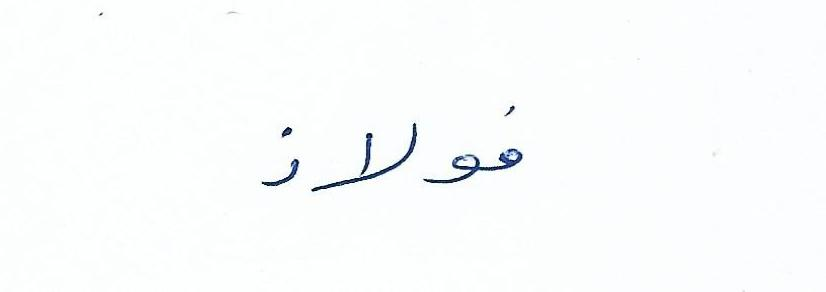 فولاذ